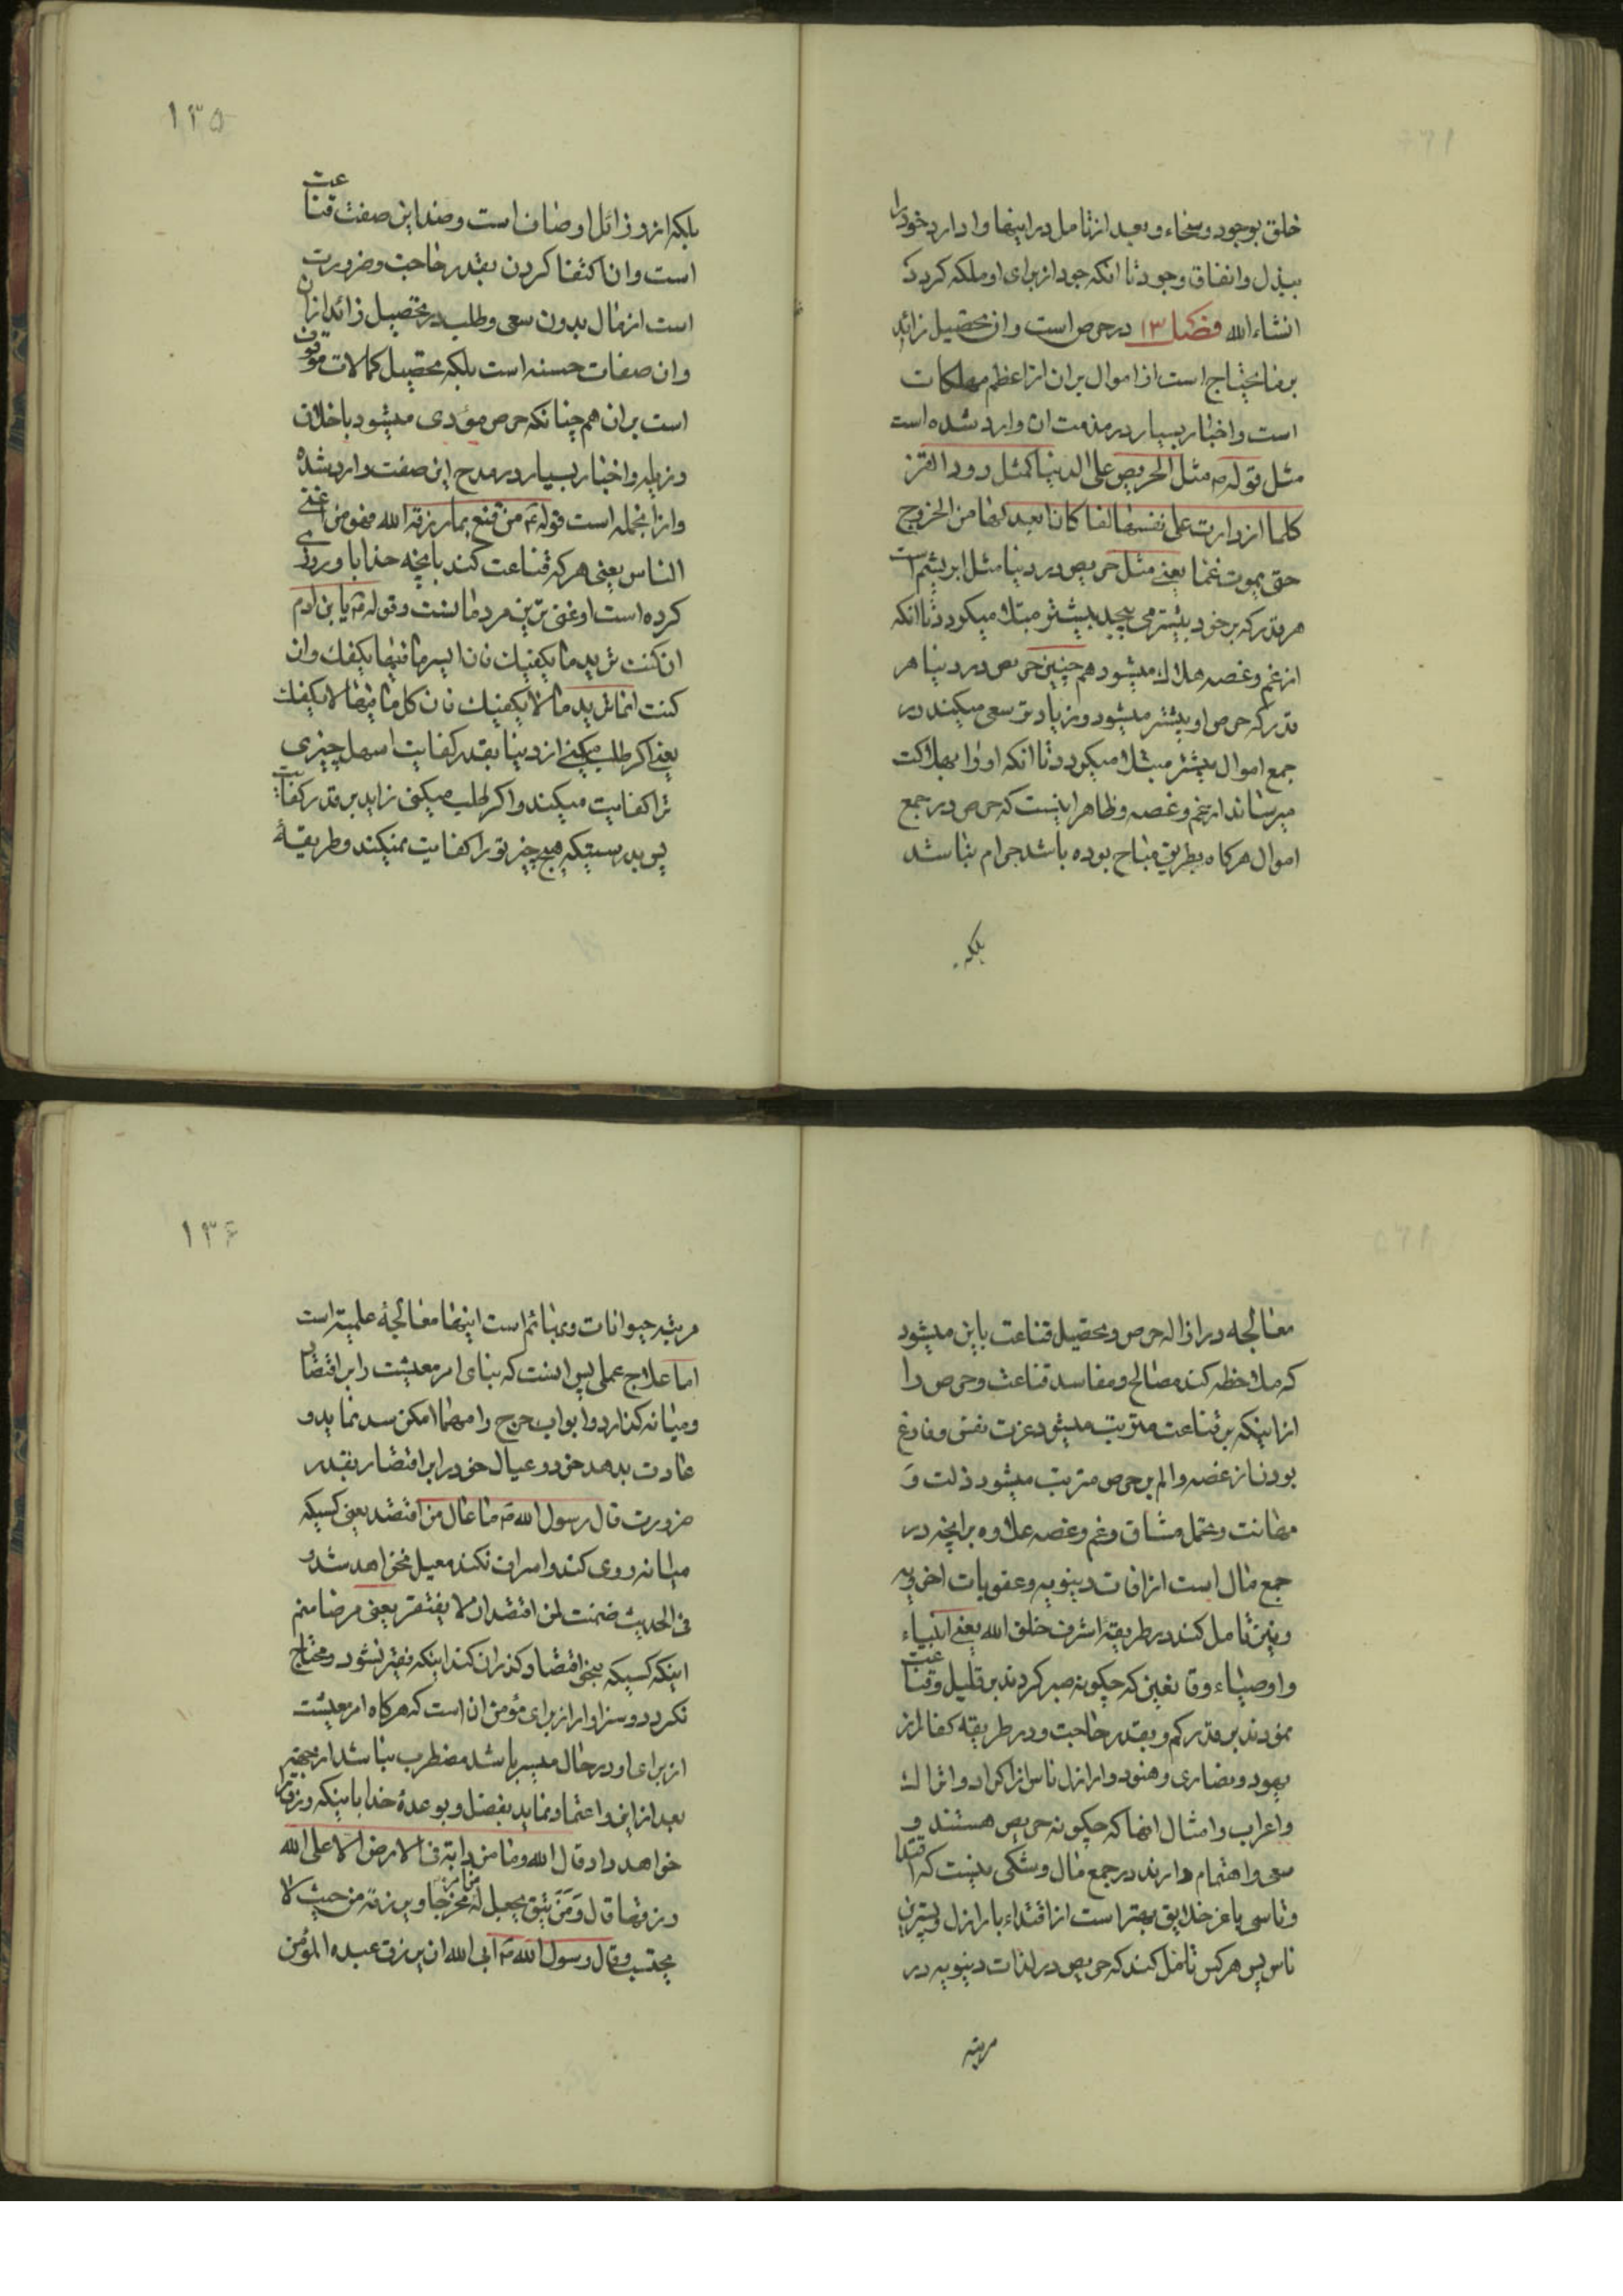 خلق بوجود وسخاء وبعد از تامل در اینها وادارد خود را
ببذل وانفاق وجود تا انکه جود از برای او ملکه کردد
انشاء الله فصل ۱۳ در حرص است وان تحصیل زائد
بر ما یحتاج است از اموال بر ان از اعظم مهلکات
است واخبار بسیار در مذمت ان وارد شده است
مثل قوله ص مثل الحریص علی الدنیا کمثل دود القز
کلما ازدادت علی نفسها لفا کان ابعد لها من الخروج
حتی یموت غما یعنی مثل حریص در دنیا مثل ابریشم است
هر قدر که بر خود بیشتر می پیچد بیشتر مبتلا میکردد تا انکه
از غم وغصه هلاک میشود هم چنین حریص در دنیا هر
قدر که حرص او بیشتر میشود وزیادتر سعی میکند در
جمع اموال بیشتر مبتلا میکردد تا انکه او را بهلاکت
میرساند از غم وغصه وظاهر اینست که حرص در جمع
اموال هرکاه بطریق مباح بوده باشد حرام نباشد
بلکه
۱۳۵
بلکه از رذائل اوصاف است وضد این صفت قناعت
است وان اکتفا کردن بقدر حاجت وضرورت
است از مال بدون سعی وطلب در تحصیل زائد از ان
وان صفات حسنه است بلکه تحصیل کمالات موقوف
است بر ان هم چنانکه حرص مؤدی میشود باخلاق
رذیله واخبار بسیار در مدح این صفت وارد شده
واز انجمله است قوله ع من قنع بما رزقه الله فهو من اغنی
الناس یعنی هر که قناعت کند بانچه خدا باو روزی
کرده است او غنی ترین مردمانست وقوله ع یا بن ادم
ان کنت ترید ما یکفیک فان ایسر ما فیها یکفک وان
کنت انما ترید ما لا یکفیک فان کل ما فیها لا یکفک
یعنی اکر طلب میکنی از دنیا بقدر کفایت اسهل چیزی
ترا کفایت میکند واکر طلب میکنی زاید بر قدر کفایت
پس بدرستیکه هیچ چیز تو را کفایت نمیکند وطریقهٔ
معالجه در ازاله حرص وتحصیل قناعت باین میشود
که ملاحظه کند مصالح ومفاسد قناعت وحرص را
از اینکه بر قناعت مترتب میشود عزت نفس وفارغ
بودن از غصه والم بر حرص مترتب میشود ذلت و
مهانت وتحمل مشاق وغم وغصه علاوه بر انچه در
جمع مال است از افات دینویه وعقوبات اخرویه
ونیز تامل کند در طریقهٔ اشرف خلق الله یعنی انبیاء
واوصیاء وقانعین که چکونه صبر کردند بر قلیل وقناعت
نمودند بر قدر کم وبقدر حاجت ودر طریقه کفار از
یهود ونصاری وهنود واراذل ناس از اکراد واتراک
واعراب وامثال انها که چکونه حریص هستند و
سعی واهتمام دارند در جمع مال وشکی نیست که اقتدا
وتاسی باعز خلایق بهتر است از اقتداء باراذل وپسترین
ناس پس هر کس تامل کند که حریص در لذات دینویه در
مرتبه
۱۳۶
مرتبه حیوانات وبهائم است اینها معالجهٔ علمیه است
اما علاج عملی پس اینست که بنای امر معیشت را بر اقتصاد
ومیانه کذارد وابواب حرج را مهما امکن سد نماید و
عادت بدهد خود وعیال خود را بر اقتصار بقدر
ضرورت قال رسول الله ص ما عال من اقتصد یعنی کسیکه
میانه روی کند واسراف نکند معیل نخواهد شد و
فی الحدیث ضمنت لمن اقتصد ان لا یفتقر یعنی من ضامنم
اینکه کسیکه بنحو اقتصاد کذران کند اینکه فقیر نشود ومحتاج
نکردد وسزاوار از برای مؤمن ان است که هرکاه امر معیشت
از برای او در حال میسر باشد مضطرب نباشد از جهة
بعد از این واعتماد نماید بفضل وبوعدهٔ خدا باینکه رزق
خواهد داد قال الله وما من دابة فی الارض الا علی الله
رزقها قال ومن یتق یجعل له مخرجا ویرزقه من حیث لا
یحتسب وقال رسول الله ص ابی الله ان یرزق عبده المؤمن